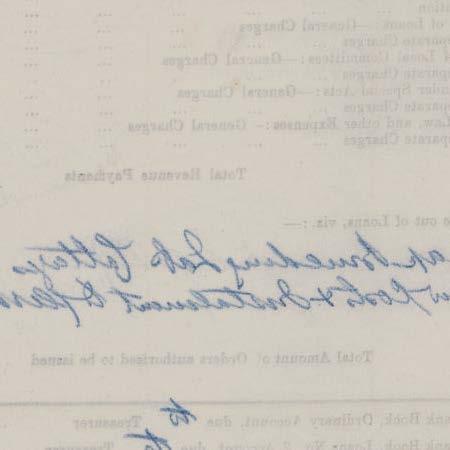 ation ... ... ...
of Loans:—General Charges ... ...
Separate Charges ... ...
of Local Committees:—General Charges ...
Separate Charges ... ...
under Special Acts:—General Charges ...
Separate Charges ... ...
Law, and other Expenses:—General Charges ...
Separate Charges ... ...
Total Revenue Payments
e out of Loans, viz. :—
Cottages
& Instalment
Total Amount of Orders authorised to be issued
ank Book, Ordinary Account, due to Treasurer
ank Book, Loans No. 2 Account, due to Treasurer